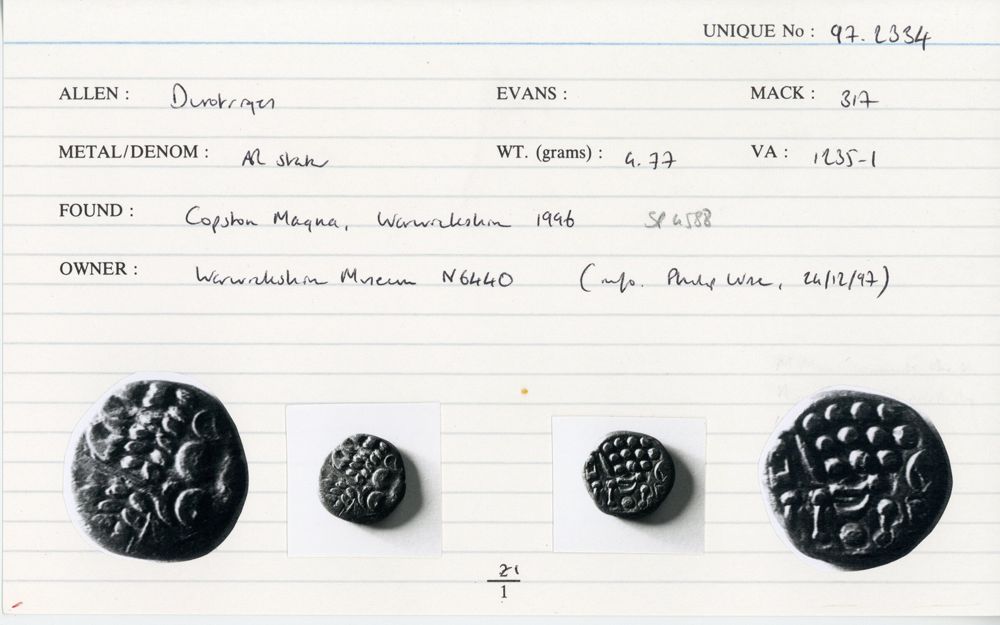 UNIQUE No : 97.2334
ALLEN : Durotriges EVANS : MACK : 317
METAL/DENOM : AR stater WT. (grams) : 4.77 VA : 1235-1
FOUND : Copston Magna, Warwickshire 1996 SP 4588
OWNER : Warwickshire Museum N6440 (info. Philip Wise, 24/12/97)
1